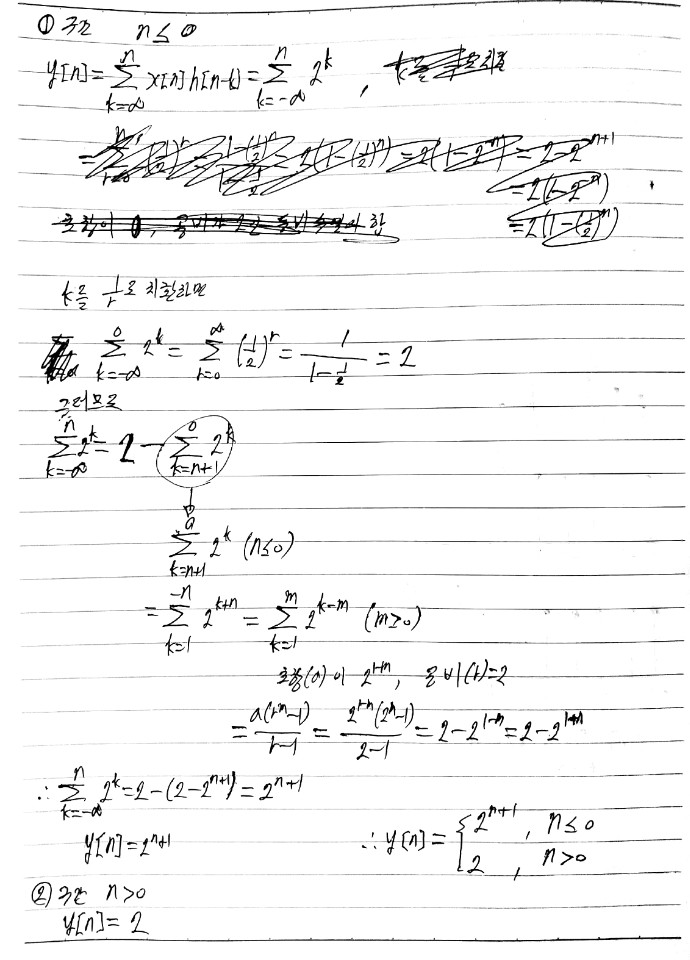 ① 구간 n ≤ 0
y[n] = ∑_{k=∞}^{n} x[n] h[n-k] = ∑_{k=-∞}^{n} 2^k ,
k를 1/r로 치환하면
∑_{k=-∞}^{0} 2^k = ∑_{r=0}^{∞} (1/2)^r = 1/(1-1/2) = 2
그러므로
∑_{k=-∞}^{n} 2^k = 2 - ∑_{k=n+1}^{0} 2^k
∑_{k=n+1}^{0} 2^k (n≤0)
= ∑_{k=1}^{-n} 2^{k+n} = ∑_{k=1}^{m} 2^{k-m} (m≥0)
초항(a)이 2^{1+n}, 공비(r)=2
= a(r^n-1)/(r-1) = 2^{1-m}(2^m-1)/(2-1) = 2-2^{1-m} = 2-2^{1+n}
∴ ∑_{k=-∞}^{n} 2^k = 2-(2-2^{n+1}) = 2^{n+1}
y[n] = 2^{n+1}
∴ y[n] = { 2^{n+1} , n≤0
2 , n>0
② 구간 n>0
y[n] = 2